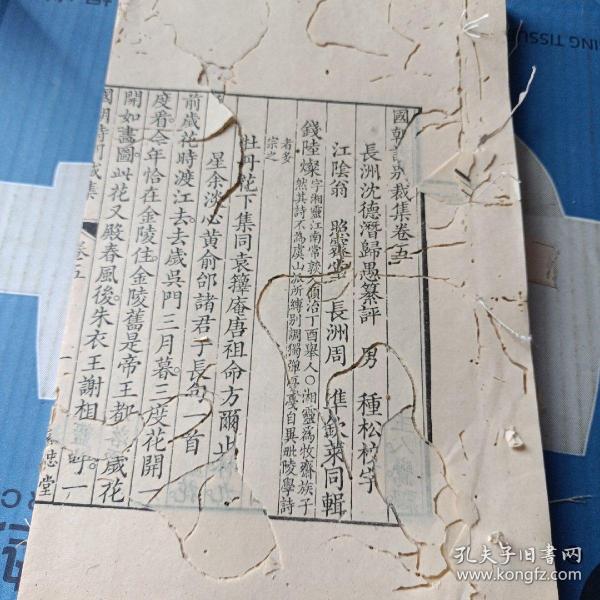 國朝詩別裁集卷五
長洲沈德潛歸愚纂評 男 種松
江陰翁 照霽堂 長洲周 準欽萊同輯
錢陸燦字湘靈江南常熟人順治丁酉舉人○湘靈為牧齋族子
然其詩不為虞山派所縛別調獨彈戛戛自異毗陵學詩
者多
宗之
牡丹花下集同袁籜庵唐祖命方爾止
星余淡心黃俞邰諸君子長句一首
前歲花時渡江去去歲吳門三月暮三度花開一
度看今年恰在金陵住金陵舊是帝王都 歲花
開如畫圖此花又殿春風後朱衣王謝相 呼一
國朝詩別裁集 卷五 一 忠堂
ING TISSU
孔夫子旧书网
www.kongfz.com